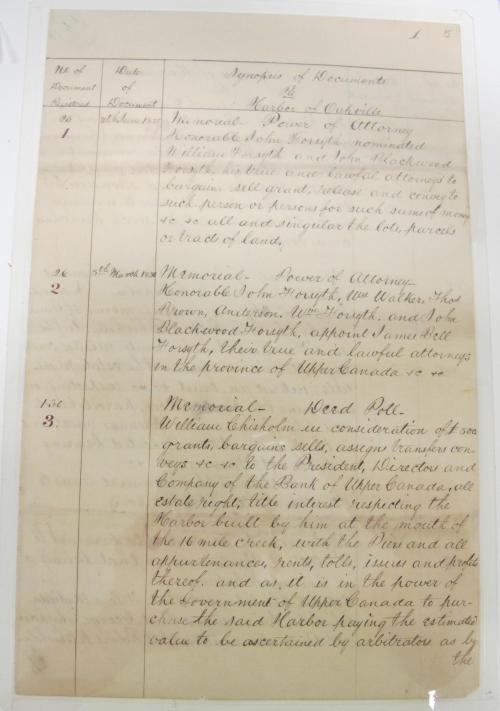 1 5
No of Document Registered
Date of Document
Synopsis of Documents
to
Harbor of Oakville
20
1
Memorial - Power of Attorney
Honorable John Forsyth nominated
William Forsyth and John Blackwood
Forsyth, his true and lawful attorneys to
bargain sell grant, release and convey to
such person or persons for such sums of money
&c &c all and singular the lots, parcels
or tracts of land.
26
2
5th March
Memorial - Power of Attorney
Honorable John Forsyth, Wm Walker, Thos
Brown, Anderson. Wm Forsyth, and John
Blackwood Forsyth, appoint James Bell
Forsyth, their true and lawful attorneys
in the province of Upper Canada &c &c
130
3.
Memorial - Deed Poll -
William Chisholm in consideration of
grants, bargains, sells, assigns transfers con-
veys &c &c to the President, Directors and
Company of the Bank of Upper Canada, all
estate right, title interest respecting the
Harbor built by him at the mouth of
the 16 mile creek, with the Piers and all
appurtenances, rents, tolls, issues and profits
thereof. and as, it is in the power of
the Government of Upper Canada to pur-
chase the said Harbor paying the estimated
value to be ascertained by arbitrators as by
the